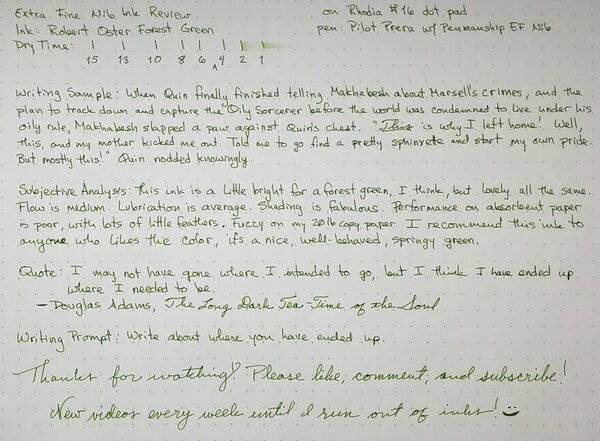 Extra Fine Nib Ink Review
on Rhodia #16 dot pad
Ink: Robert Oster Forest Green
pen: Pilot Prera w/ Penmanship EF Nib
Dry Time: | | | | | | | |
15 13 10 8 6 ^ 4 2 1
Writing Sample: When Quin finally finished telling Makhabesh about Marsell's crimes, and the
plan to track down and capture the Oily Sorcerer before the world was condemned to live under his
oily rule, Makhabesh slapped a paw against Quin's chest. "This is why I left home! Well,
this, and my mother kicked me out. Told me to go find a pretty sphinxete and start my own pride.
But mostly this!" Quin nodded knowingly.
Subjective Analysis: This ink is a little bright for a forest green, I think, but lovely all the same.
Flow is medium. Lubrication is average. Shading is fabulous. Performance on absorbent paper
is poor, with lots of little feathers. Fuzzy on my 20lb copy paper. I recommend this ink to
anyone who likes the color, it's a nice, well-behaved, springy green.
Quote: I may not have gone where I intended to go, but I think I have ended up
where I needed to be.
— Douglas Adams, The Long Dark Tea-Time of the Soul
Writing Prompt: Write about where you have ended up.
Thanks for watching! Please like, comment, and subscribe!
New videos every week until I run out of inks!